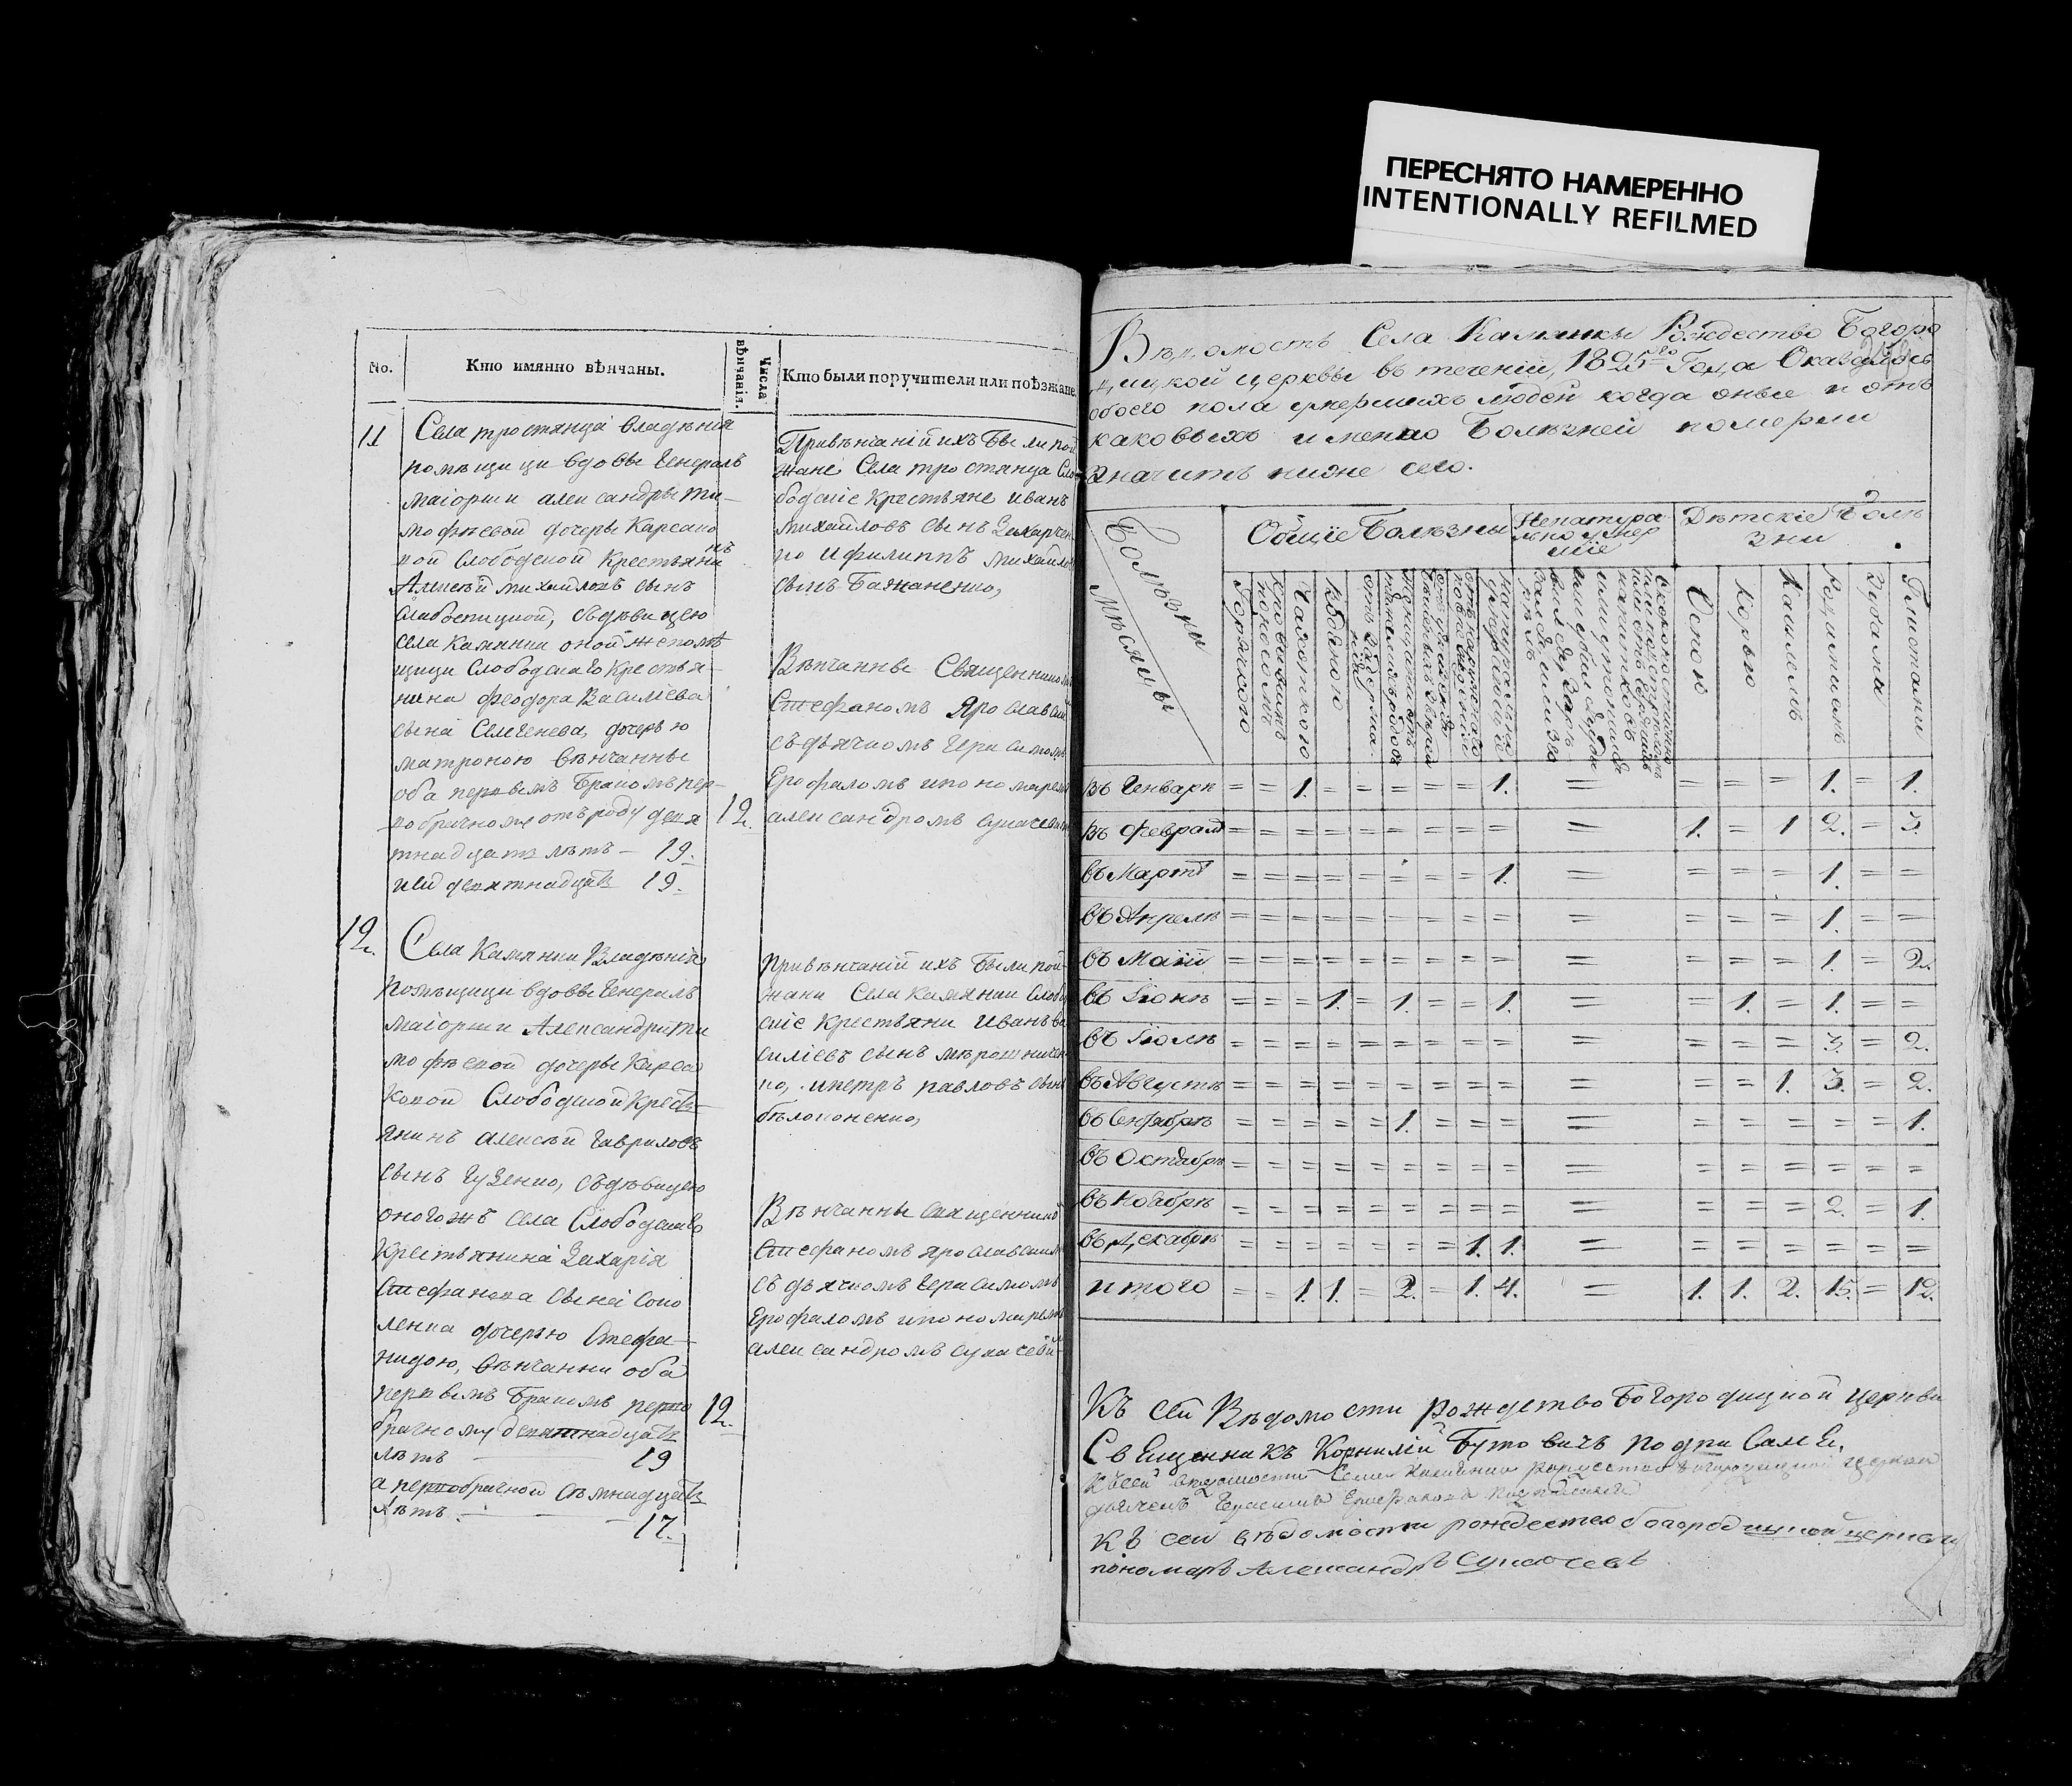 ПЕРЕСНЯТО НАМЕРЕННО
INTENTIONALLY REFILMED
No.
Кто имянно вѣнчаны.
Числа вѣнчанія.
Кто были поручители или поѣзжане.
11
Села тростянца владѣнія
помѣщици вдовы Генералъ
маіорши александры ти-
мофѣевой дочеры Карсако
вой Слободской Крестьяни
нъ
Алексѣй михайловъ сынъ
Слабоспицкой, съдѣвицею
села Камянки оной же помѣ
щици Слободскаго Крестья-
нина феодора Василіева
сына дочерью
матроною вѣнчанны
оба первымъ бракомъ пер-
вобрачному отъ роду девя
тнадцать лѣтъ — 19.
ией девятнадцать 19.
12.
Привѣнчаніи ихъ были пой
жане Села тростанца Сло-
бодскіе Крестьяне иванъ
михайловъ сынъ Захарчен
ко ифилиппъ михайло
сынъ Бажаненко,
Вѣнчанны Священнико
Стефаномъ Ярославски
съдьячкомъ Герасимомъ
Ерофаломъ ипономаремъ
александромъ
12.
Села Камянки Владѣнія
помѣщици вдовы Генералъ
маіорши Александри ти
мофѣевой дочеры Карса
ковой Слободской Кресть
янинъ алексѣй Гавриловъ
сынъ Гузенко, съдѣвицею
оногожъ села Слободскаго
Крестьянина Захарія
Стефанова сына Соко
ленка дочерью Стефа-
нидою, вѣнчанни оба
первымъ бракомъ перво
брачному девятнадцать
лѣтъ — 19
а первобрачной семнадцать
лѣтъ — 17.
12.
Привѣнчаніи ихъ были пой-
жани Села Камянки Слобо
скіе Крестьяни Иванъ ва
силіевъ сынъ мѣрошничен
ко, ипетръ павловъ сынъ
бѣлоконенко,
Вѣнчанны священнико
Стефаномъ Ярославски
съдьячкомъ Герасимомъ
Ерофаломъ ипономаремъ
александромъ
Вѣдомость Села Камянки Рождество Богоро
дицкой церквы въ теченіи, 1825го Года Оказалось
обоего пола умершихъ людей когда оные и отъ
каковыхъ именно Болѣзней померли
значить ниже сего.
Болѣзни
Мѣсяцы
Общіе Болѣзны
Ненатура
льно умер
шіе
Дѣтскіе Болѣ
зни
Горячкою
поносомъ
Чахоткою
Водяною
Оспою
Корью
Кашлемъ
Родимцомъ
Зубами
Глистами
въ Генваря = = 1. = = = = = 1. = = = = 1. = 1.
въ феврал = = = = = = = = = = 1. = 1 2. = 3.
въ Мартѣ = = = = = = = = 1. = = = = 1. = =
въ Апрелѣ = = = = = = = = = = = = = 1. = =
въ Маіи = = = = = = = = = = = = = 1. = 2.
въ Іюнѣ = = = 1. = 1. = = 1. = = 1. = 1. = =
въ Іюлѣ = = = = = = = = = = = = = 3. = 2.
въ Августѣ = = = = = = = = = = = = 1. 3. = 2.
въ Сентябрѣ = = = = = 1. = = = = = = = = = 1.
въ Октябрѣ = = = = = = = = = = = = = = = =
въ Ноябрѣ = = = = = = = = = = = = = 2. = 1.
въ Декабрѣ = = = = = = = 1. 1. = = = = = = =
итого = = 1. 1. = 2. = 1. 4. = 1. 1. 2. 15. = 12.
Къ сей Вѣдомости рождество Богородицкой церкви
Священникъ Корнилій Бутовичъ подписалъ.
Къ сей вѣдомости Села Камянки рождество богородицкой церкви
Къ сей вѣдомости рождество богородицкой церкви
пономарь Александръ